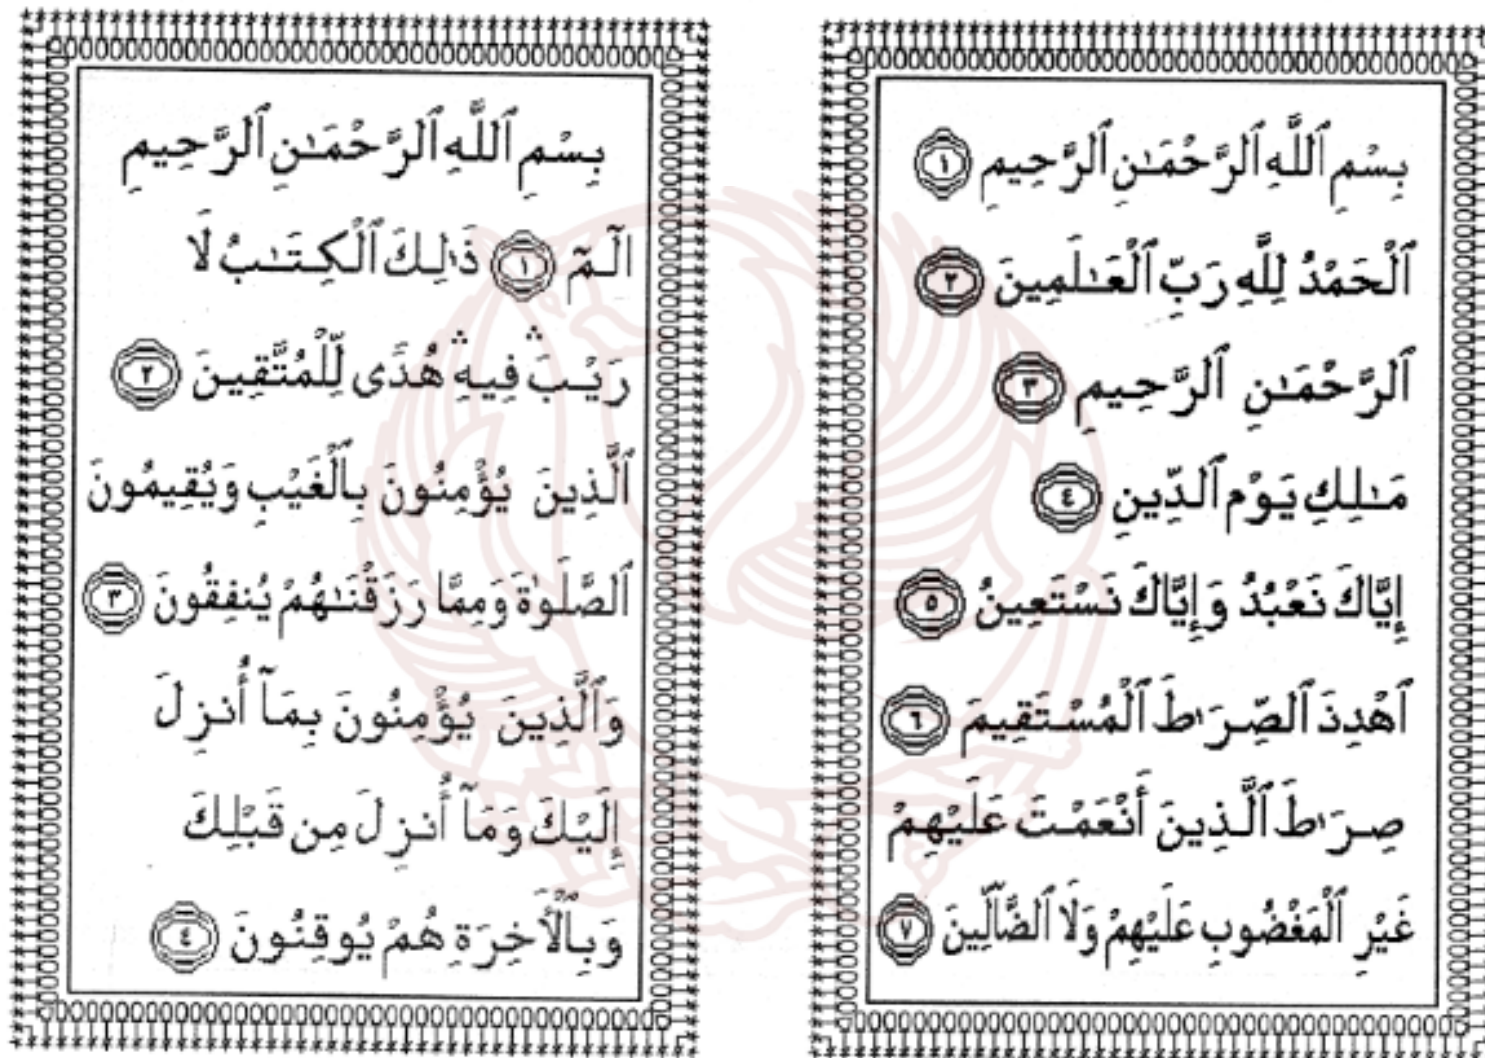 بِسْمِ ٱللَّهِ ٱلرَّحْمَـٰنِ ٱلرَّحِيمِ ١
ٱلْحَمْدُ لِلَّهِ رَبِّ ٱلْعَـٰلَمِينَ ٢
ٱلرَّحْمَـٰنِ ٱلرَّحِيمِ ٣
مَـٰلِكِ يَوْمِ ٱلدِّينِ ٤
إِيَّاكَ نَعْبُدُ وَإِيَّاكَ نَسْتَعِينُ ٥
ٱهْدِنَا ٱلصِّرَٰطَ ٱلْمُسْتَقِيمَ ٦
صِرَٰطَ ٱلَّذِينَ أَنْعَمْتَ عَلَيْهِمْ
غَيْرِ ٱلْمَغْضُوبِ عَلَيْهِمْ وَلَا ٱلضَّآلِّينَ ٧
بِسْمِ ٱللَّهِ ٱلرَّحْمَـٰنِ ٱلرَّحِيمِ
الٓمٓ ١ ذَٰلِكَ ٱلْكِتَـٰبُ لَا
رَيْبَ ۛ فِيهِ ۛ هُدًى لِّلْمُتَّقِينَ ٢
ٱلَّذِينَ يُؤْمِنُونَ بِٱلْغَيْبِ وَيُقِيمُونَ
ٱلصَّلَوٰةَ وَمِمَّا رَزَقْنَـٰهُمْ يُنفِقُونَ ٣
وَٱلَّذِينَ يُؤْمِنُونَ بِمَآ أُنزِلَ
إِلَيْكَ وَمَآ أُنزِلَ مِن قَبْلِكَ
وَبِٱلْأَخِرَةِ هُمْ يُوقِنُونَ ٤